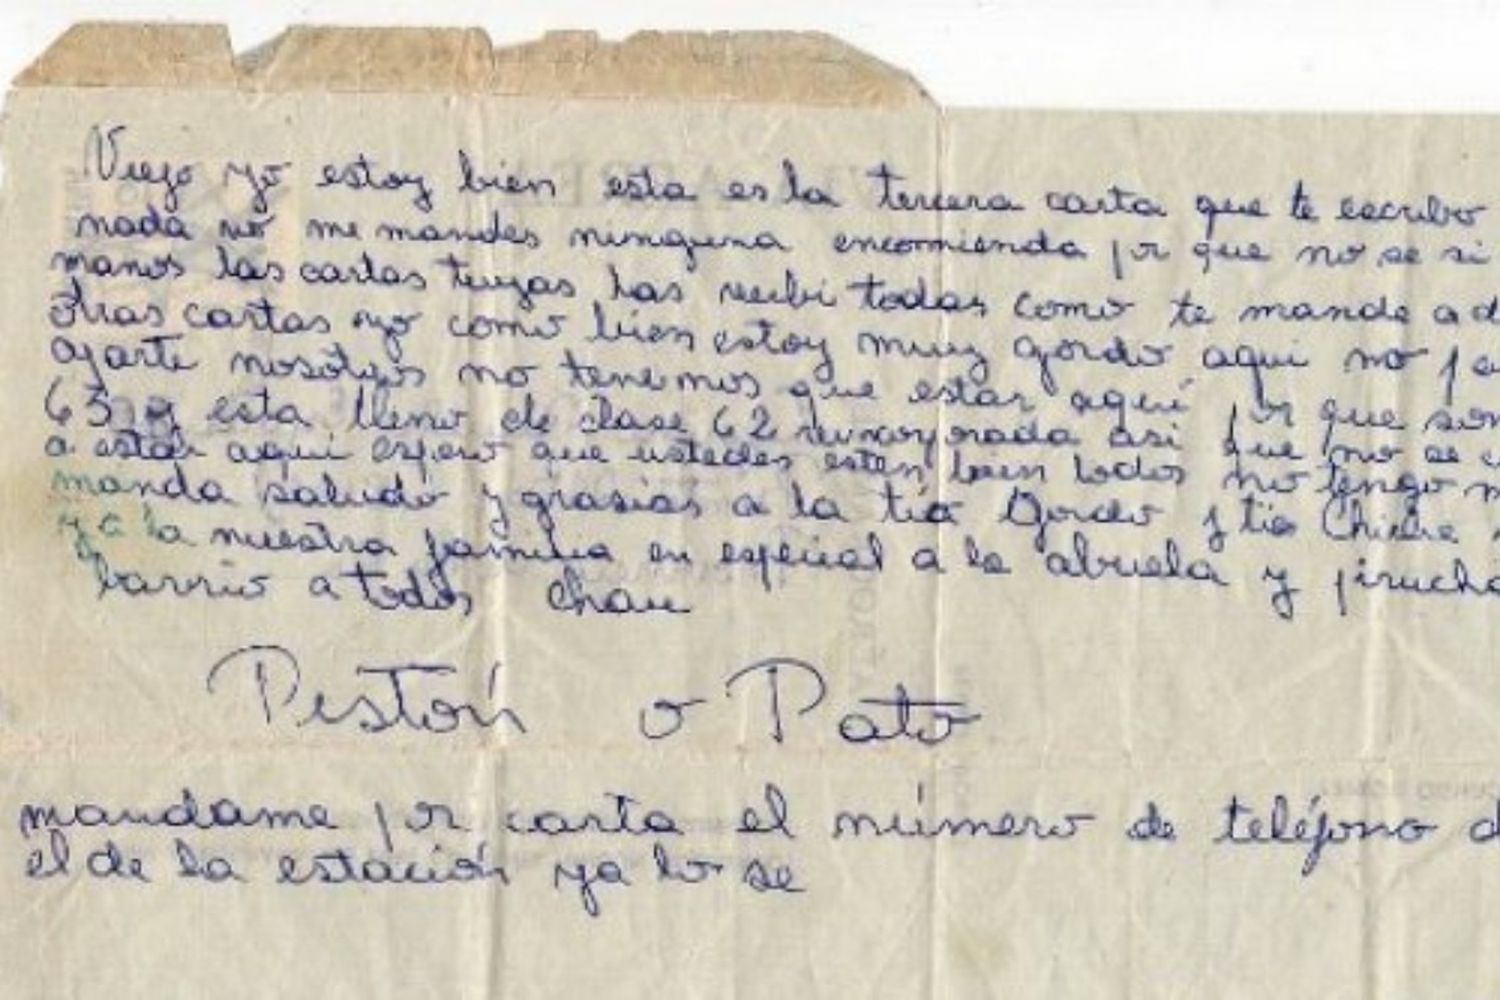 Viejo yo estoy bien esta es la tercera carta que te escribo
nada no me mandes ninguna encomienda por que no se si
manos las cartas tuyas las recibi todas como te mande a d
otras cartas yo como bien estoy muy gordo aqui no pa
aparte nosotros no tenemos que estar aquí por que som
63 y esta lleno de clase 62 reincorporada asi que no se c
a estar aqui espero que ustedes esten bien todos no tengo m
manda saludo y grasias a la tia Gordo y tia
y a la nuestra familia en especial a la abuela y pirucho
barrio a todos chau
Pistón o Pato
mandame por carta el número de teléfono d
el de la estación ya lo se